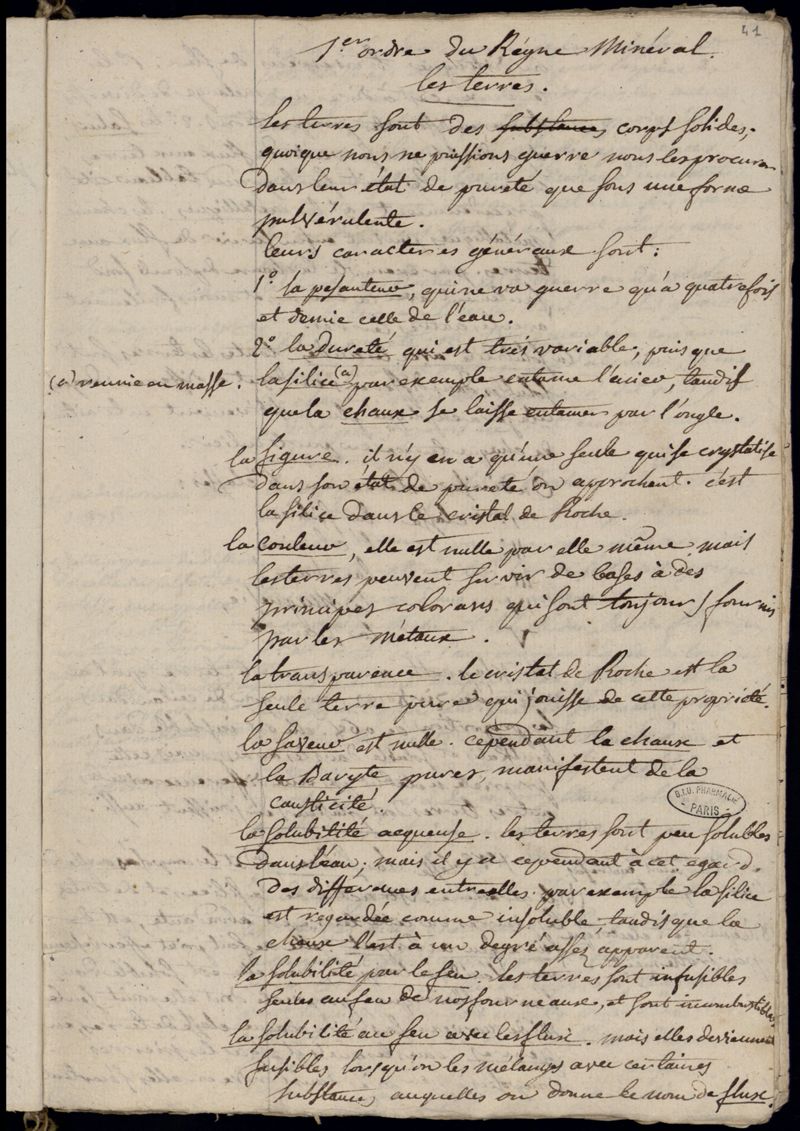 41
1.er ordre du Régne Minéral.
les terres.
les terres sont des substances corps solides,
quoique nous ne puissions guerre nous les procurer
dans leur état de pureté que sous une forme
pulvérulente.
leurs caracteres généraux sont :
1° la pesanteur, qui ne va guerre qu'a quatre fois
et demie celle de l'eau.
2° la dureté qui est trés variable, puis que
(a) reunie en masse. la silice (a) par exemple entame l'acier, tandis
que la chaux se laisse entamer par l'ongle.
la figure. il n'y en a qu'une seule qui se crystalise
dans son état de pureté ou approchent. c'est
la silice dans le cristal de Roche.
la couleur, elle est nulle par elle même, mais
les terres peuvent servir de bases à des
principes colorans qui sont toujours fournis
par les métaux.
la transparence. le cristal de Roche est la
seule terre pure qui jouisse de cette propriété.
la saveur est nulle. cependant la chaux et
la Baryte pures, manifestent de la
causticité.
B.I.U. PHARMACIE
PARIS
la solubilité acqueuse. les terres sont peu solubles
dans l'eau. mais il y a cependant à cet egard
des différences entre elles. par exemple la silice
est regardée comme insoluble tandis que la
chaux l'est à un degré assés apparent.
la solubilité par le feu les terres sont infusibles
seules au feu de nos fourneaux, et sont incombustibles.
la solubilité au feu avec les flux. mais elles deviennent
fusibles lorsqu'on les mélange avec certaines
substances auquelles on donne le nom de flux.